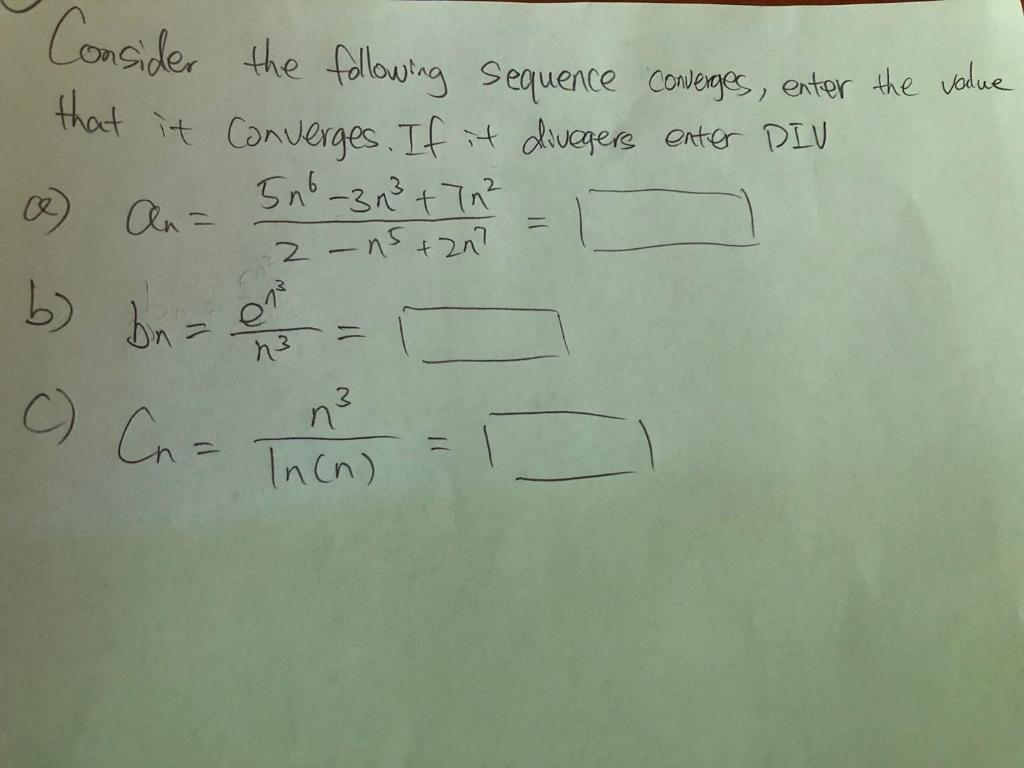 Consider the following sequence converges, enter the value
that it Converges. If it divegers enter DIV
a) an = 5n^6 - 3n^3 + 7n^2 / 2 - n^5 + 2n^7 =
b) bn = e^n^3 / n^3 =
c) Cn = n^3 / ln(n) =